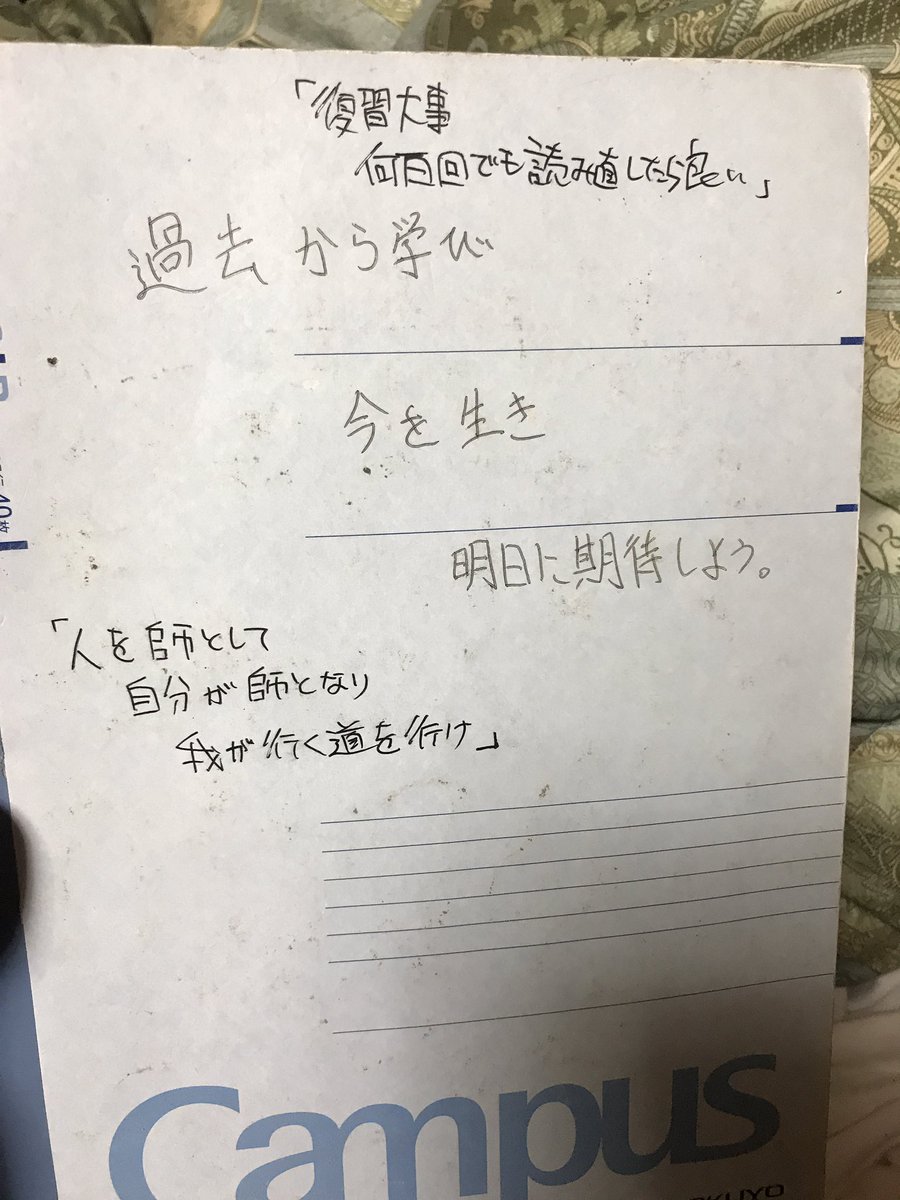 「復習大事
何百回でも読み直したら良い」
過去から学び
今を生き
明日に期待しよう。
「人を師として
自分が師となり
我が行く道を行け」
Campus
KOKUYO
40枚